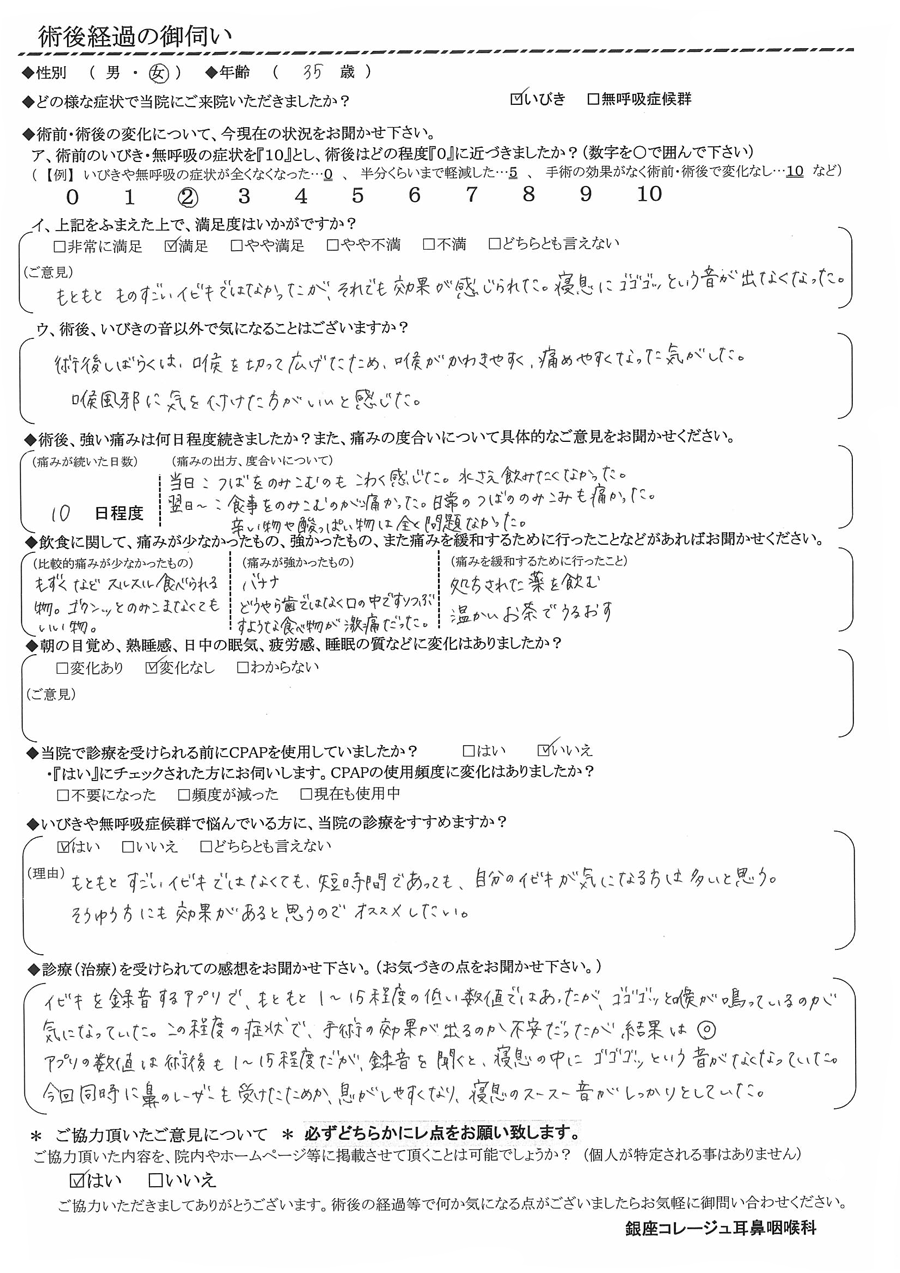 術後経過の御伺い
◆性別 ( 男 ・ 女 ) ◆年齢 ( 35 歳 )
◆どの様な症状で当院にご来院いただきましたか? ☑いびき □無呼吸症候群
◆術前・術後の変化について、今現在の状況をお聞かせ下さい。
ア、術前のいびき・無呼吸の症状を『10』とし、術後はどの程度『0』に近づきましたか?(数字を〇で囲んで下さい)
(【例】 いびきや無呼吸の症状が全くなくなった…0 、 半分くらいまで軽減した…5 、 手術の効果がなく術前・術後で変化なし…10 など)
0 1 ② 3 4 5 6 7 8 9 10
イ、上記をふまえた上で、満足度はいかがですか?
□非常に満足 ☑満足 □やや満足 □やや不満 □不満 □どちらとも言えない
(ご意見)
もともと ものすごいイビキではなかったが、それでも効果が感じられた。寝息にゴゴゴッという音が出なくなった。
ウ、術後、いびきの音以外で気になることはございますか?
術後しばらくは、喉を切って広げたため、喉がかわきやすく、痛めやすくなった気がした。
喉風邪に気を付けた方がいいと感じた。
◆術後、強い痛みは何日程度続きましたか?また、痛みの度合いについて具体的なご意見をお聞かせください。
(痛みが続いた日数) (痛みの出方、度合いについて)
当日:つばをのみこむのもこわく感じた。水さえ飲みたくなかった。
10 日程度 翌日〜:食事をのみこむのが痛かった。日常のつばののみこみも痛かった。
辛い物や酸っぱい物は全く問題なかった。
◆飲食に関して、痛みが少なかったもの、強かったもの、また痛みを緩和するために行ったことなどがあればお聞かせください。
(比較的痛みが少なかったもの) (痛みが強かったもの) (痛みを緩和するために行ったこと)
もずくなどスルスル食べられる バナナ 処方された薬を飲む
物。ゴクンッとのみこまなくても どうやら歯ではなく口の中ですりつぶ 温かいお茶でうるおす
いい物。 すような食べ物が激痛だった。
◆朝の目覚め、熟睡感、日中の眠気、疲労感、睡眠の質などに変化はありましたか?
□変化あり ☑変化なし □わからない
(ご意見)
◆当院で診療を受けられる前にCPAPを使用していましたか? □はい ☑いいえ
・『はい』にチェックされた方にお伺いします。CPAPの使用頻度に変化はありましたか?
□不要になった □頻度が減った □現在も使用中
◆いびきや無呼吸症候群で悩んでいる方に、当院の診療をすすめますか?
☑はい □いいえ □どちらとも言えない
(理由) もともとすごいイビキではなくても、短時間であっても、自分のイビキが気になる方は多いと思う。
そうゆう方にも効果があると思うのでオススメしたい。
◆診療(治療)を受けられての感想をお聞かせ下さい。(お気づきの点をお聞かせ下さい。)
イビキを録音するアプリで、もともと1〜15程度の低い数値ではあったが、ゴゴゴッと喉が鳴っているのが
気になっていた。この程度の症状で、手術の効果が出るのか不安だったが結果は◎
アプリの数値は術後も1〜15程度だが、録音を聞くと、寝息の中にゴゴゴッという音がなくなっていた。
今回同時に鼻のレーザーも受けたためか、息がしやすくなり、寝息のスースー音がしっかりとしていた。
＊ ご協力頂いたご意見について ＊ 必ずどちらかにレ点をお願い致します。
ご協力頂いた内容を、院内やホームページ等に掲載させて頂くことは可能でしょうか? (個人が特定される事はありません)
☑はい □いいえ
ご協力いただきましてありがとうございます。術後の経過等で何か気になる点がございましたらお気軽に御問い合わせください。
銀座コレージュ耳鼻咽喉科